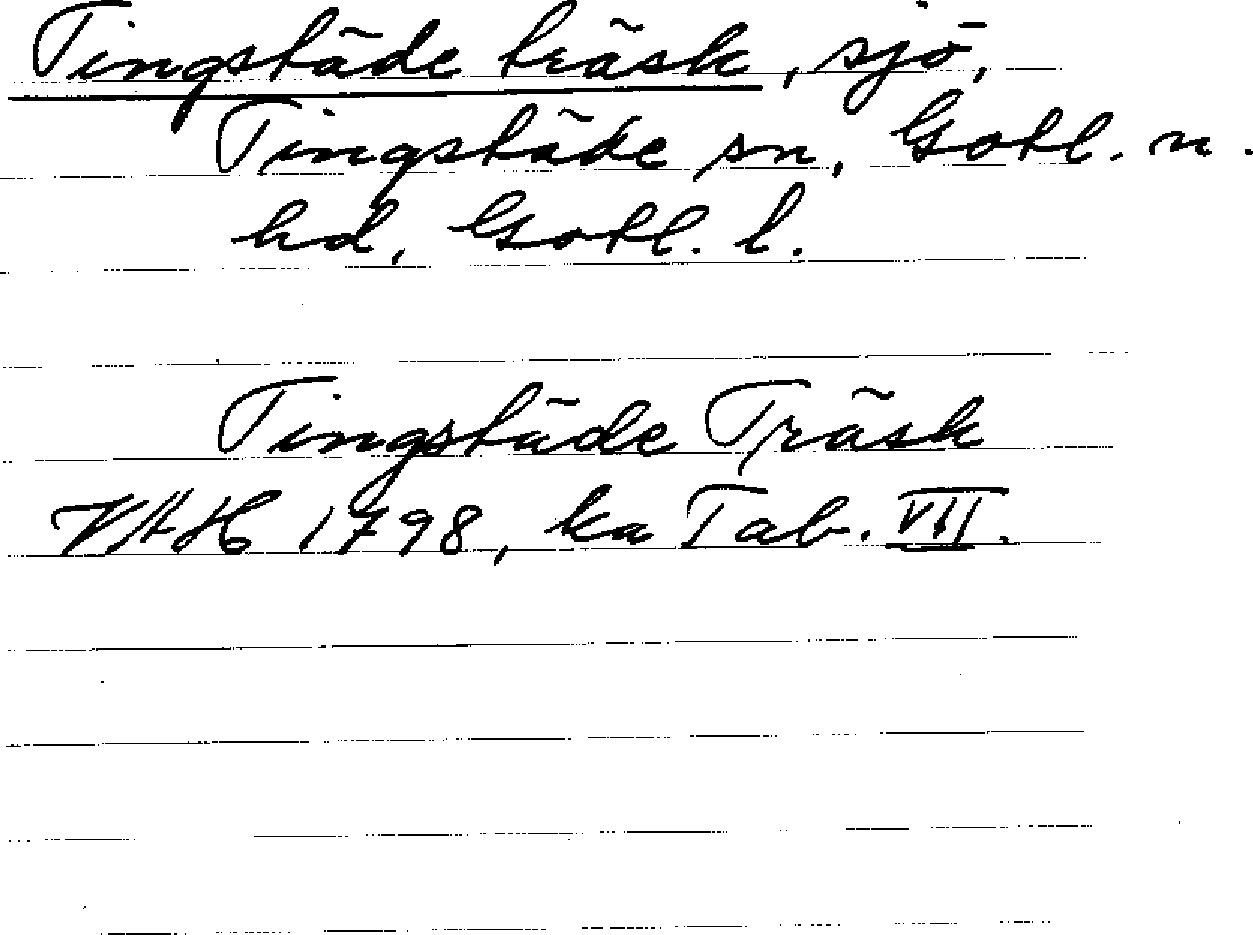 Tingstäde träsk, sjö,
Tingstäde sn, Gotl. n.
hd, Gotl. l.
Tingstäde Träsk
VAH 1798, ka Tab. VII.